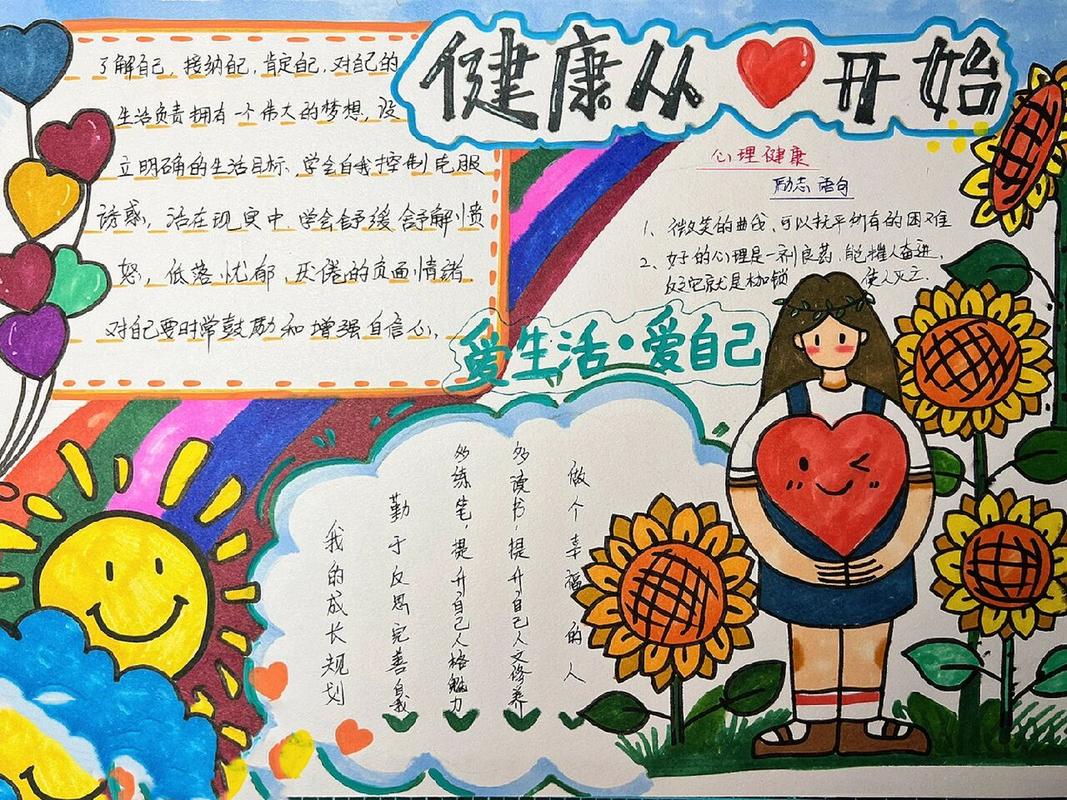 健康从 开始
了解自己，接纳自己，肯定自己，对自己的
生活负责拥有一个伟大的梦想，设
立明确的生活目标，学会自我控制克服
诱惑，活在现实中，学会舒缓舒解愤
怒，低落忧郁，厌倦的负面情绪
对自己要时常鼓励和增强自信心。
心理健康
励志语句
1、微笑的曲线，可以抚平所有的困难
2、好的心理是一剂良药，能催人奋进，
反之它就是枷锁 使人灭亡.
爱生活·爱自己
做个幸福的人
多读书 提升自己人文修养
多练笔，提升自己人格魅力
勤于反思完善自我
我的成长规划